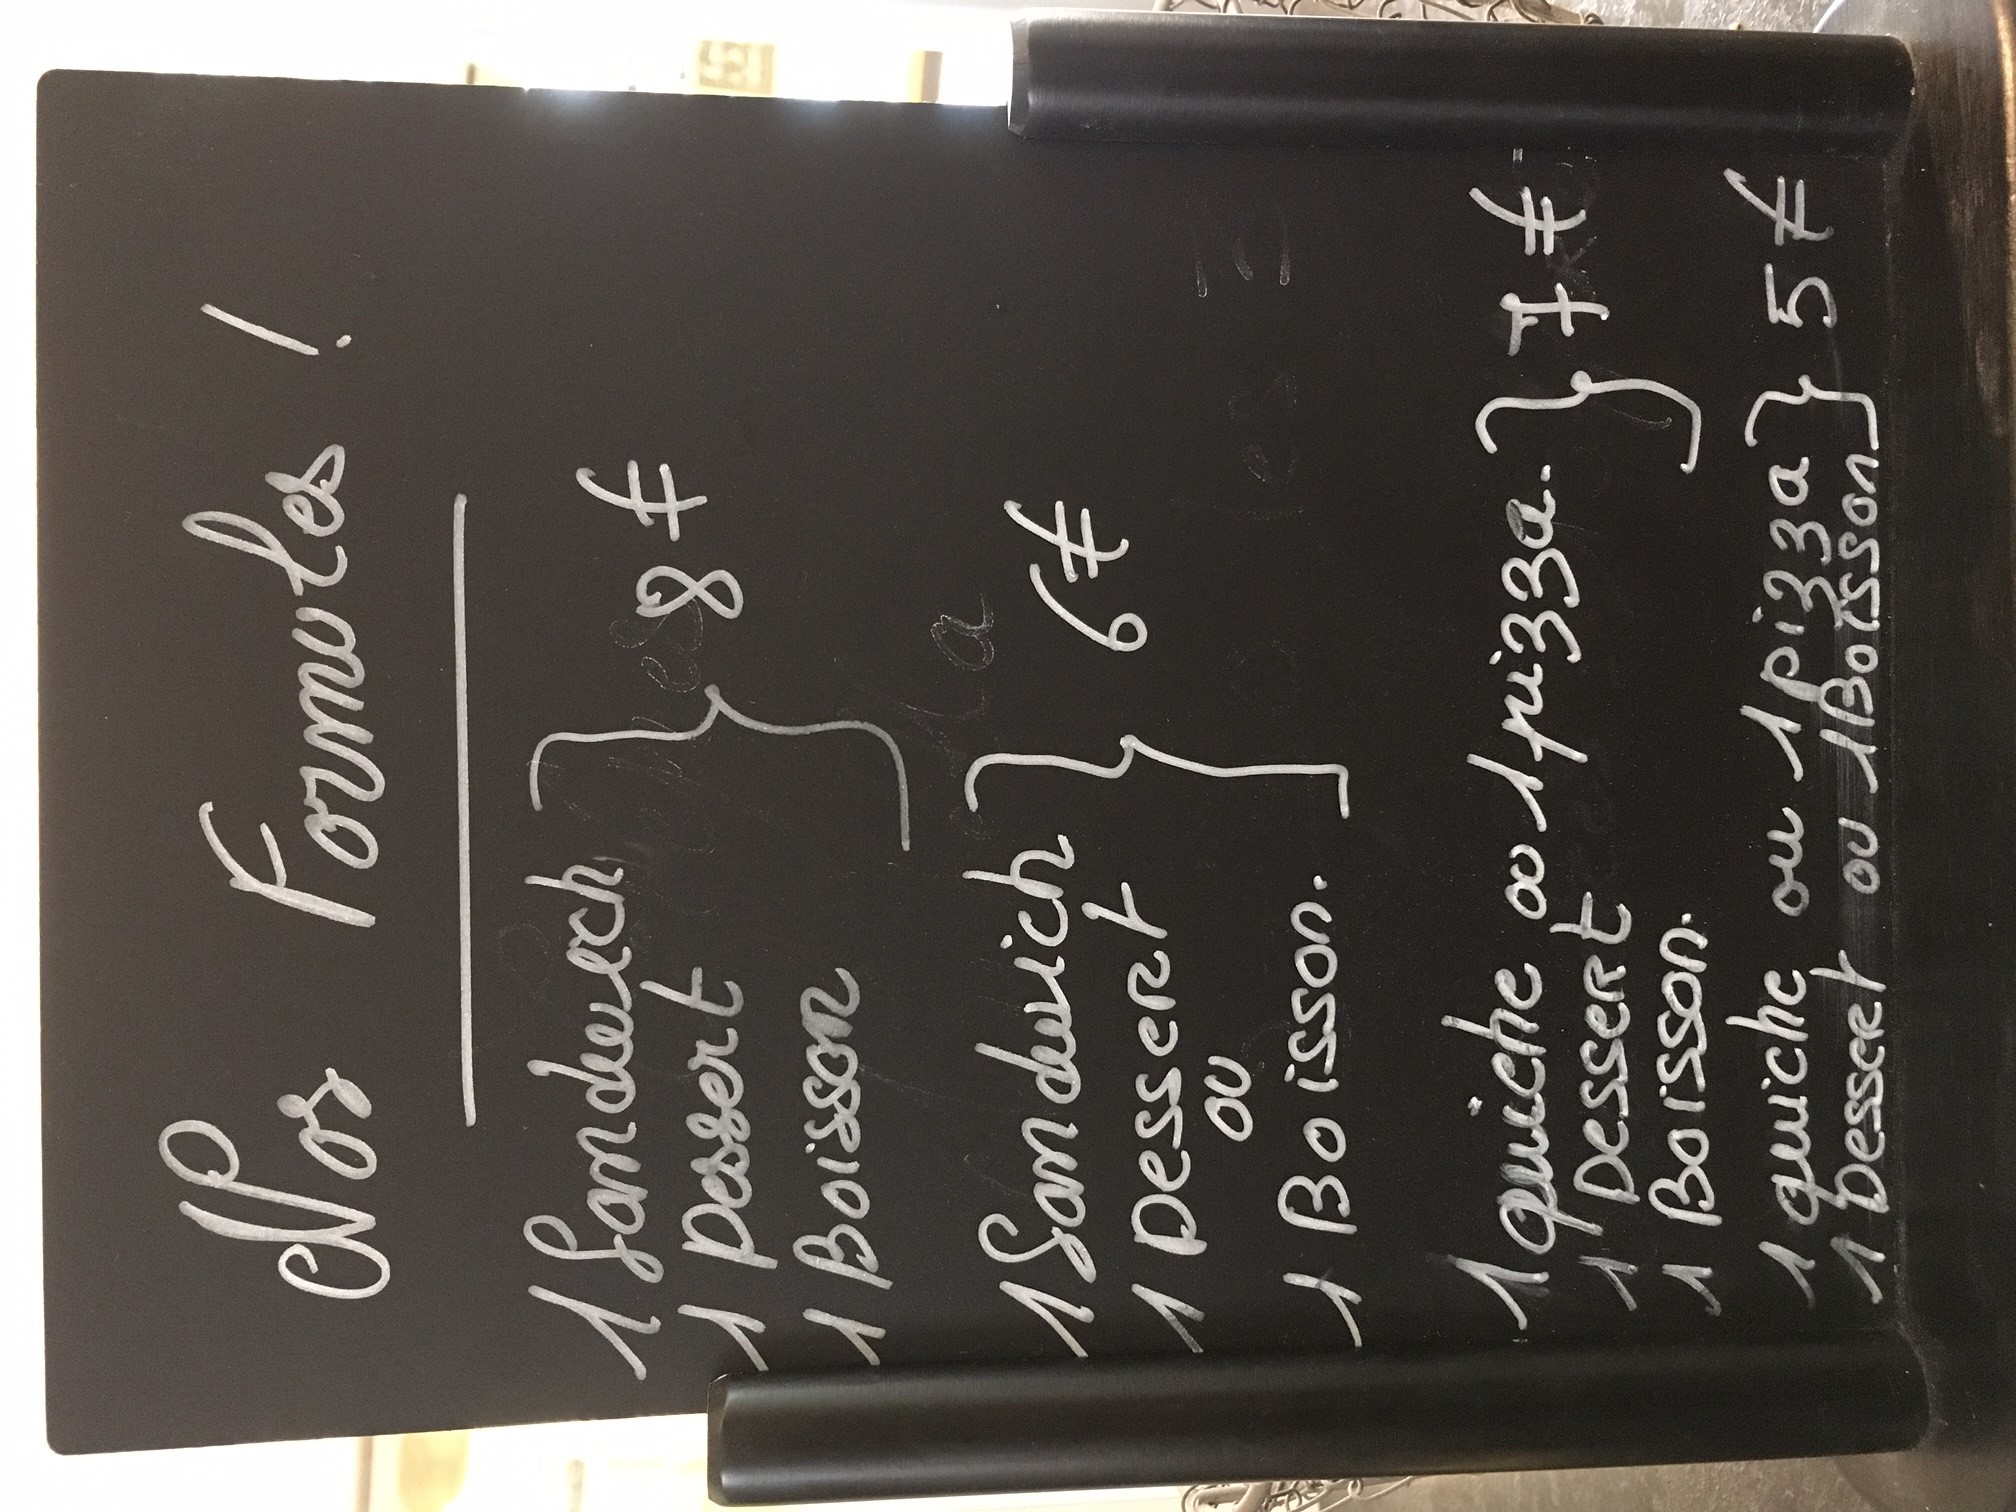 Nos Formules !
1 Sandwich
1 Dessert } 8 €
1 Boisson
1 Sandwich
1 Dessert } 6 €
ou
1 Boisson.
1 quiche ou 1 pizza. } 7 €
1 Dessert
1 Boisson.
1 quiche ou 1 pizza } 5 €
1 Dessert ou 1 Boisson